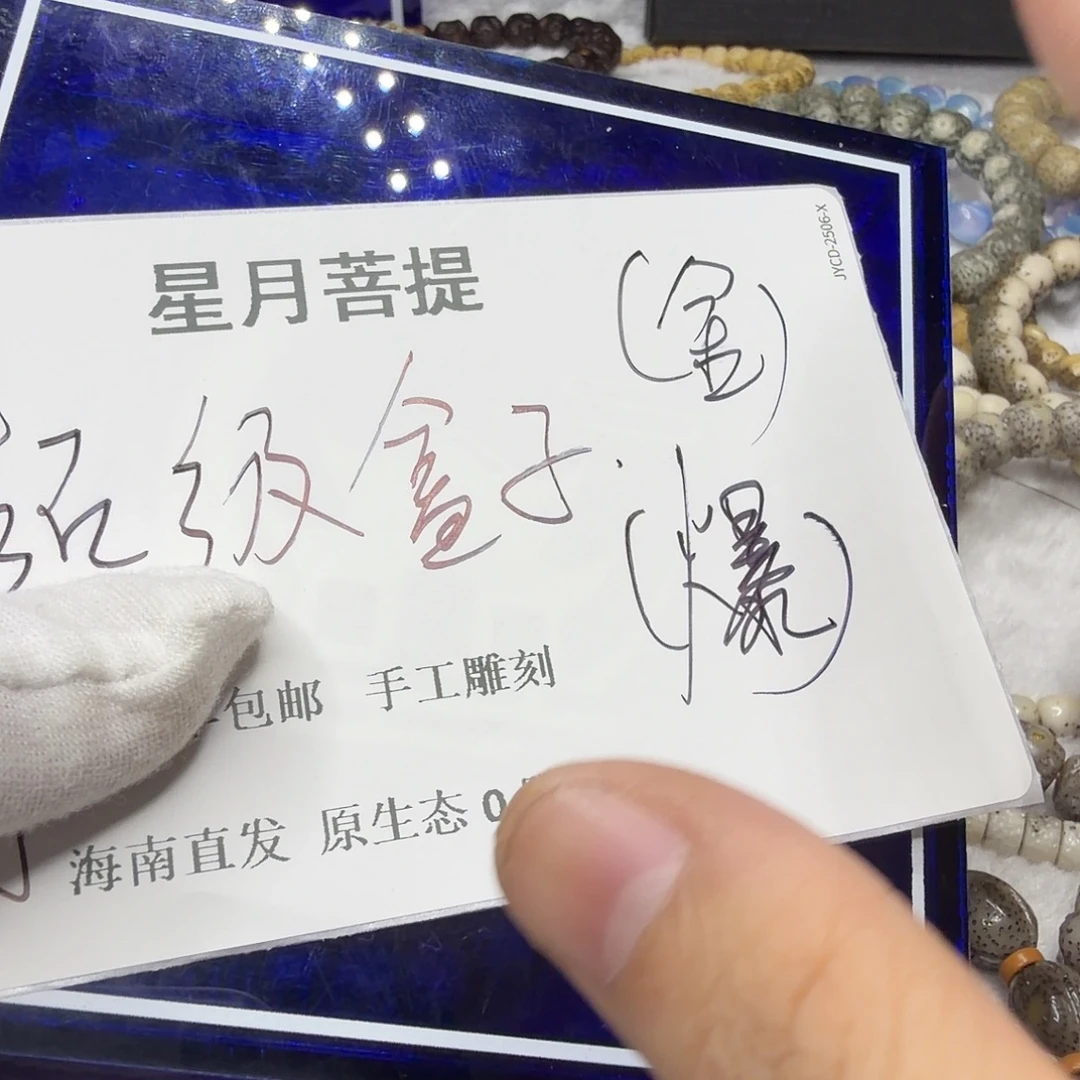 JYCD-2506-X
星月菩提
(金)
超级盒子
(爆)
包邮 手工雕刻
海南直发 原生态 0